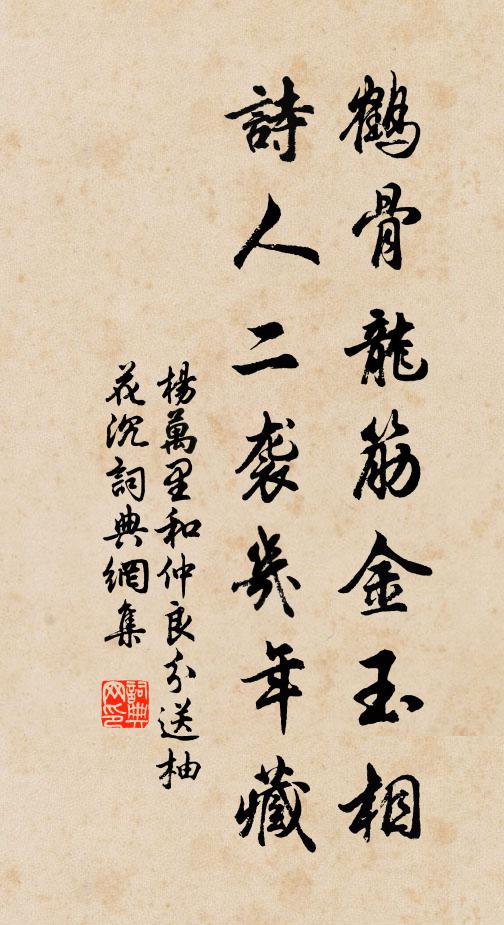 鶴骨龍筋金玉相
詩人二袭幾年藏
楊萬里和仲良分送柚
花沉詞典網集
詞典
网印